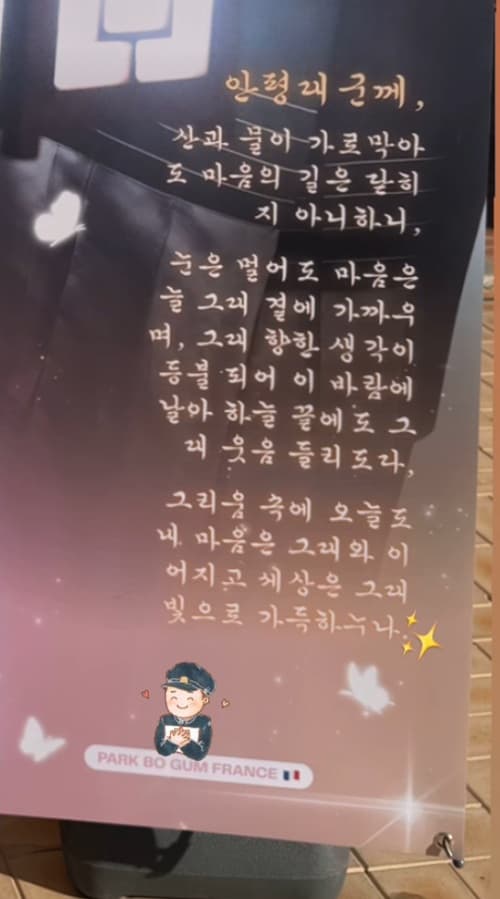 안평대군께,
산과 물이 가로막아
도 마음의 길은 닫히
지 아니하니,
눈은 멀어도 마음은
늘 그대 곁에 가까우
며, 그대 향한 생각이
등불 되어 이 바람에
날아 하늘 끝에도 그
대 웃음 들리도다,
그리움 속에 오늘도
내 마음은 그대와 이
어지고 세상은 그대
빛으로 가득하누나.
PARK BO GUM FRANCE 🇫🇷